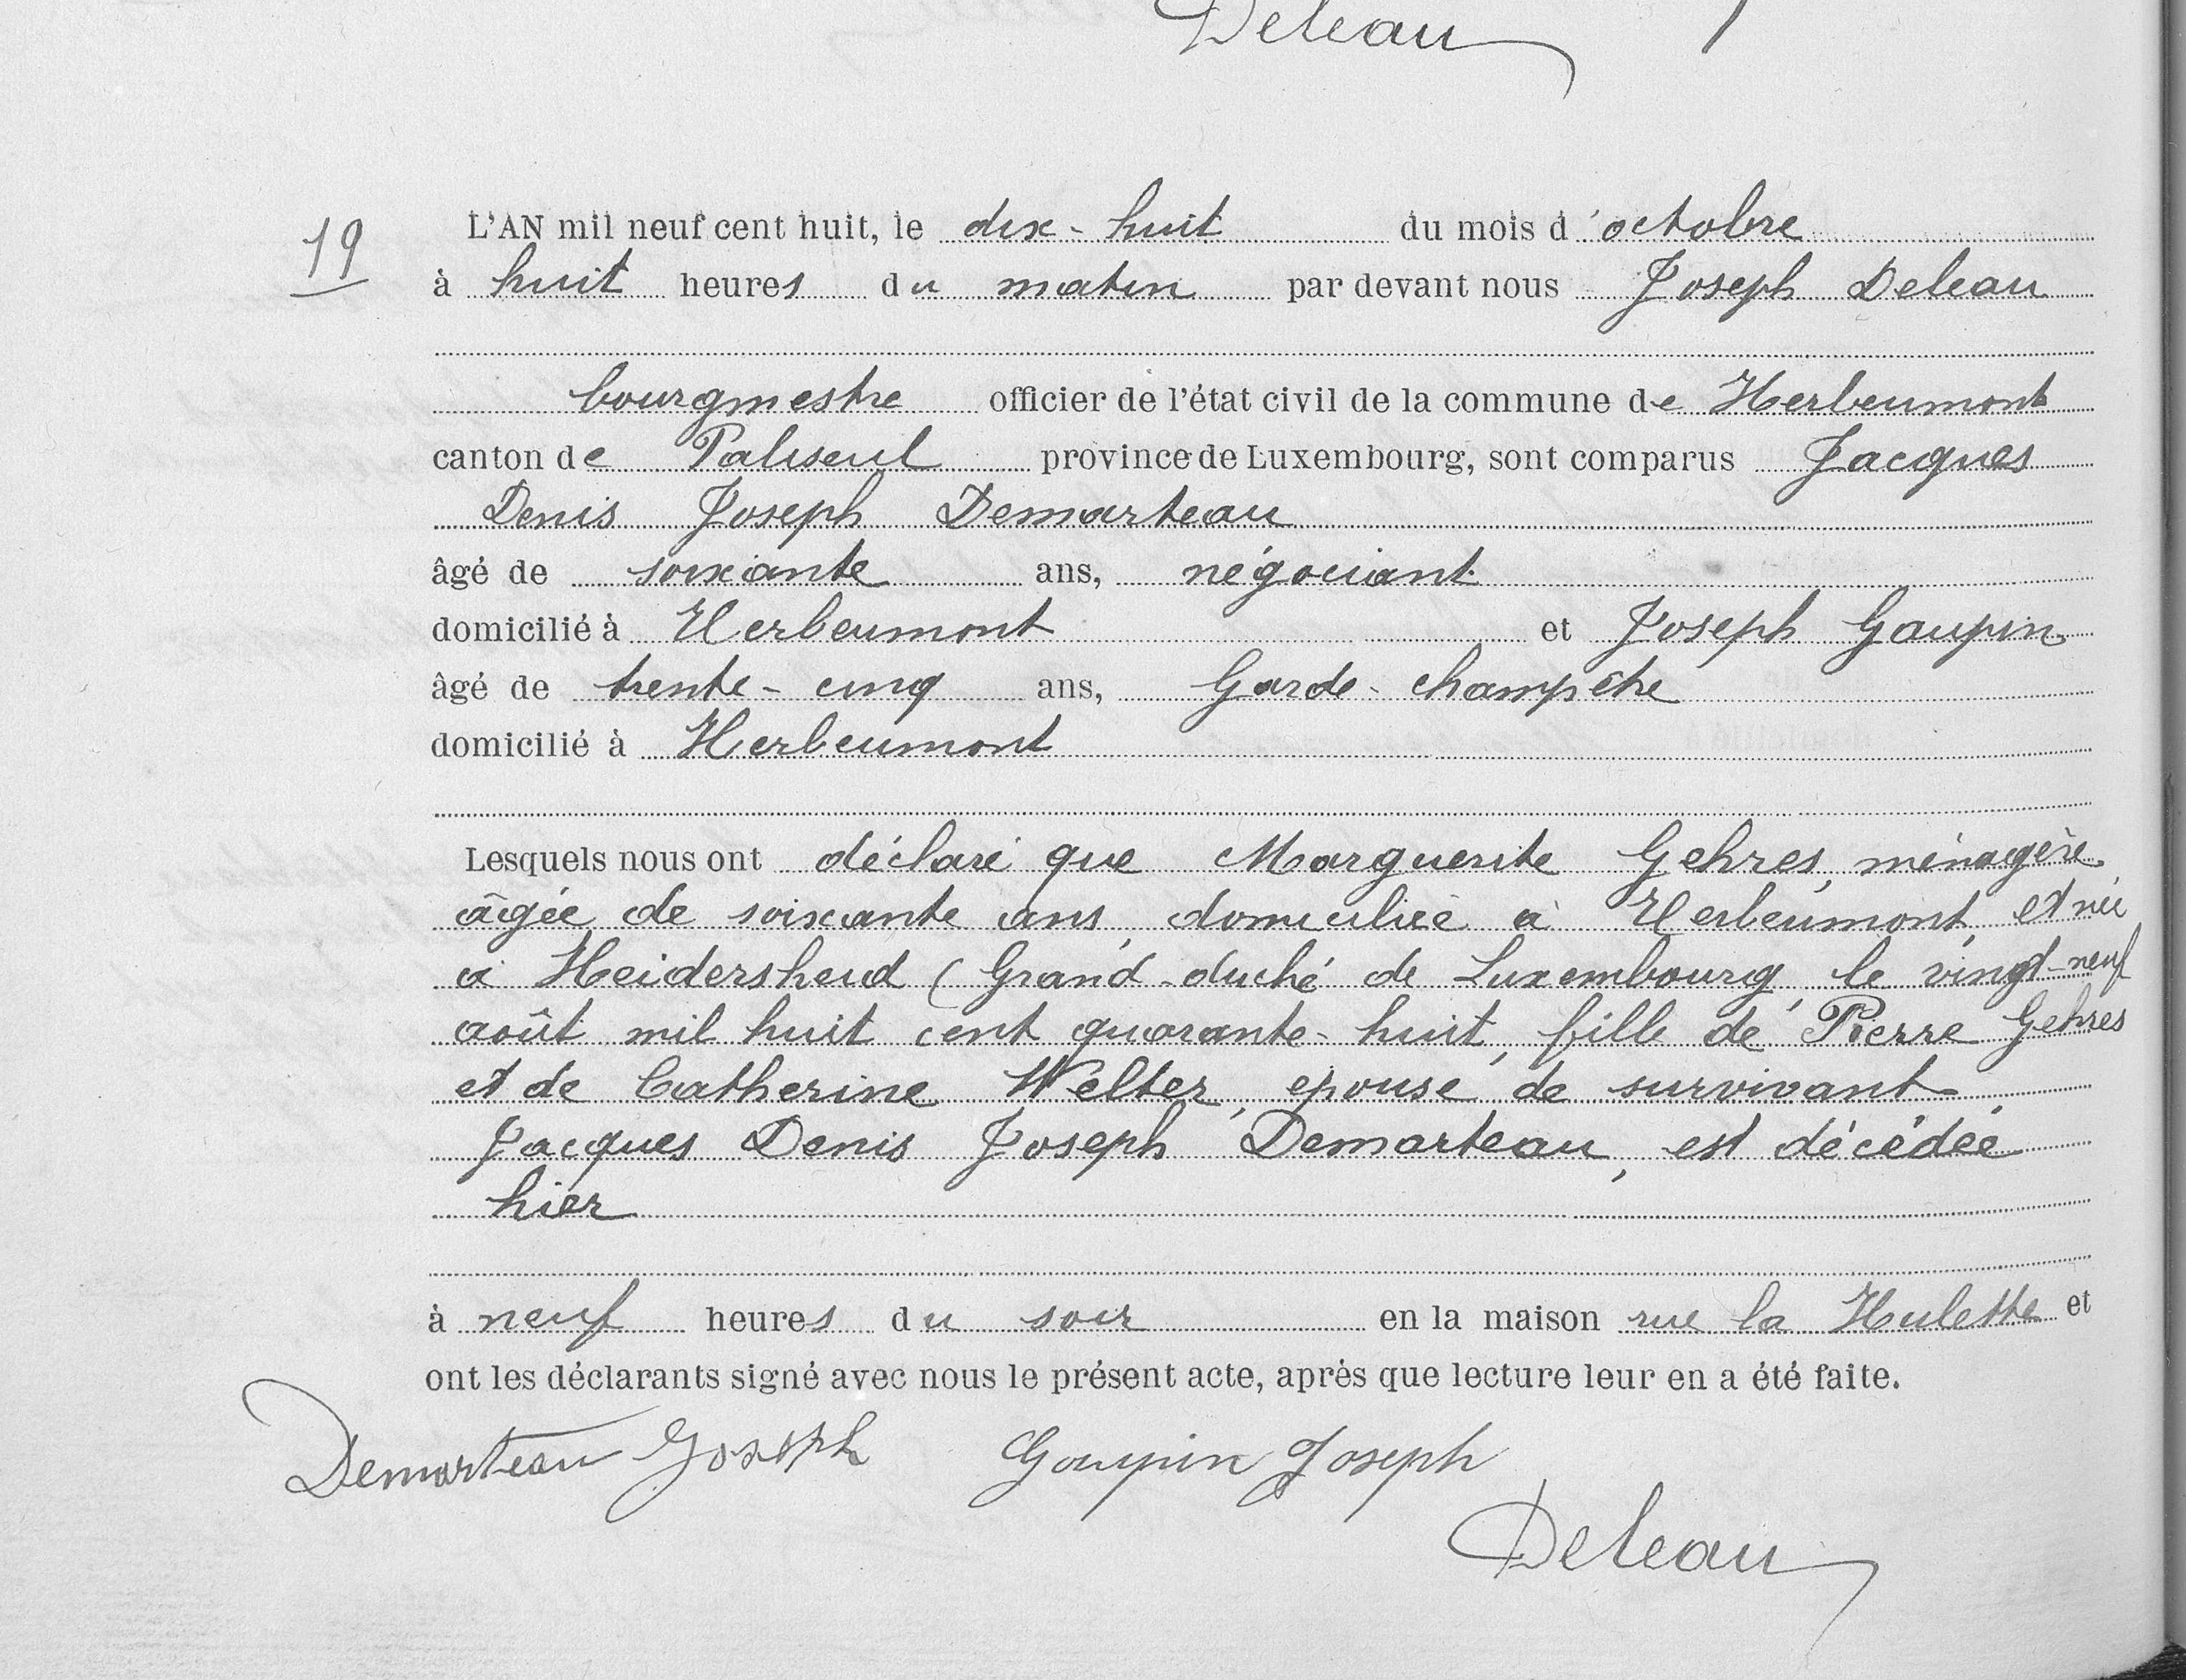 Deleau
19
L'AN mil neuf cent huit, le dix-huit du mois d'octobre
à huit heures du matin par devant nous Joseph Deleau
bourgmestre officier de l'état civil de la commune de Herbeumont
canton de Paliseul province de Luxembourg, sont comparus Jacques
Denis Joseph Demarteau
âgé de soixante ans, négociant
domicilié à Herbeumont et Joseph Goupin
âgé de trente-cinq ans, Garde-champêtre
domicilié à Herbeumont
Lesquels nous ont déclaré que Marguerite Gehres, ménagère,
âgée de soixante ans, domiciliée à Herbeumont, et née
à Heidersheid (Grand-duché de Luxembourg, le vingt-neuf
août mil huit cent quarante-huit, fille de Pierre Gehres
et de Catherine Welter, épouse de survivant
Jacques Denis Joseph Demarteau, est décédée
hier
à neuf heures du soir en la maison rue la Hulette et
ont les déclarants signé avec nous le présent acte, après que lecture leur en a été faite.
Demarteau Joseph Goupin Joseph
Deleau